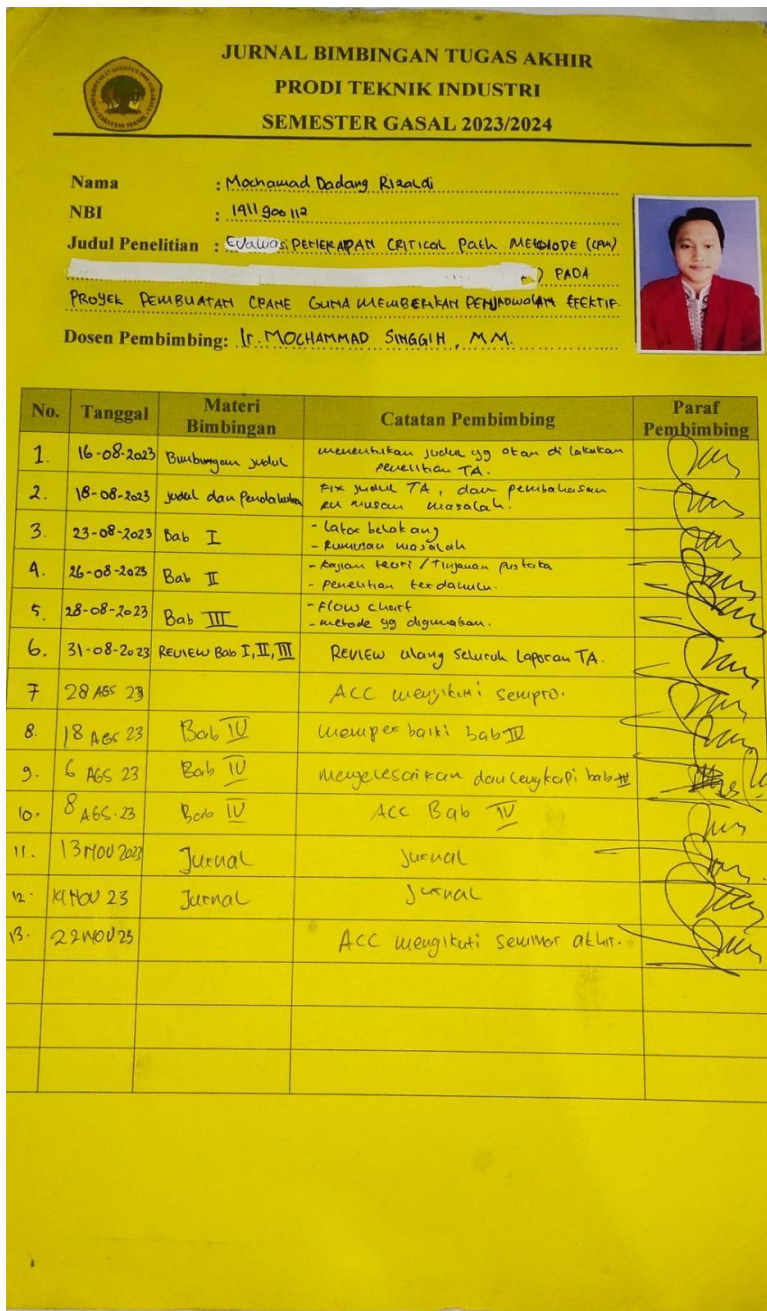 JURNAL BIMBINGAN TUGAS AKHIR
PRODI TEKNIK INDUSTRI
SEMESTER GASAL 2023/2024
Nama : Mochamad Dadang Rizaldi
NBI : 1411900112
Judul Penelitian : Evaluasi PENERAPAN CRITICAL Path METHODE (CPM)
) PADA
PROYEK PEMBUATAN CRANE GUNA MEMBERIKAN PENJADWALAN EFEKTIF.
Dosen Pembimbing: Ir. MOCHAMMAD SINGGIH, MM.
No. Tanggal Materi Bimbingan Catatan Pembimbing Paraf Pembimbing
1. 16-08-2023 Bimbingan judul menentukan judul yg akan di lakukan
penelitian TA.
2. 18-08-2023 judul dan Pendahuluan Fix judul TA, dan pembahasan
rumusan masalah.
3. 23-08-2023 Bab I - Latar belakang
- Rumusan masalah
4. 26-08-2023 Bab II - Kajian teori / Tinjauan pustaka
- penelitian terdahulu.
5. 28-08-2023 Bab III - Flow chart
- metode yg digunakan.
6. 31-08-2023 REVIEW Bab I, II, III REVIEW ulang seluruh Laporan TA.
7 28 AGS 23 ACC mengikuti sempro.
8. 18 AGS 23 Bab IV memperbaiki bab IV
9. 6 AGS 23 Bab IV menyelesaikan dan lengkapi bab IV
10. 8 AGS. 23 Bab IV ACC Bab IV
11. 13 NOV 2023 Jurnal Jurnal
12. NOV 23 Jurnal Jurnal
13. 22 NOV 23 ACC mengikuti seminar akhir.